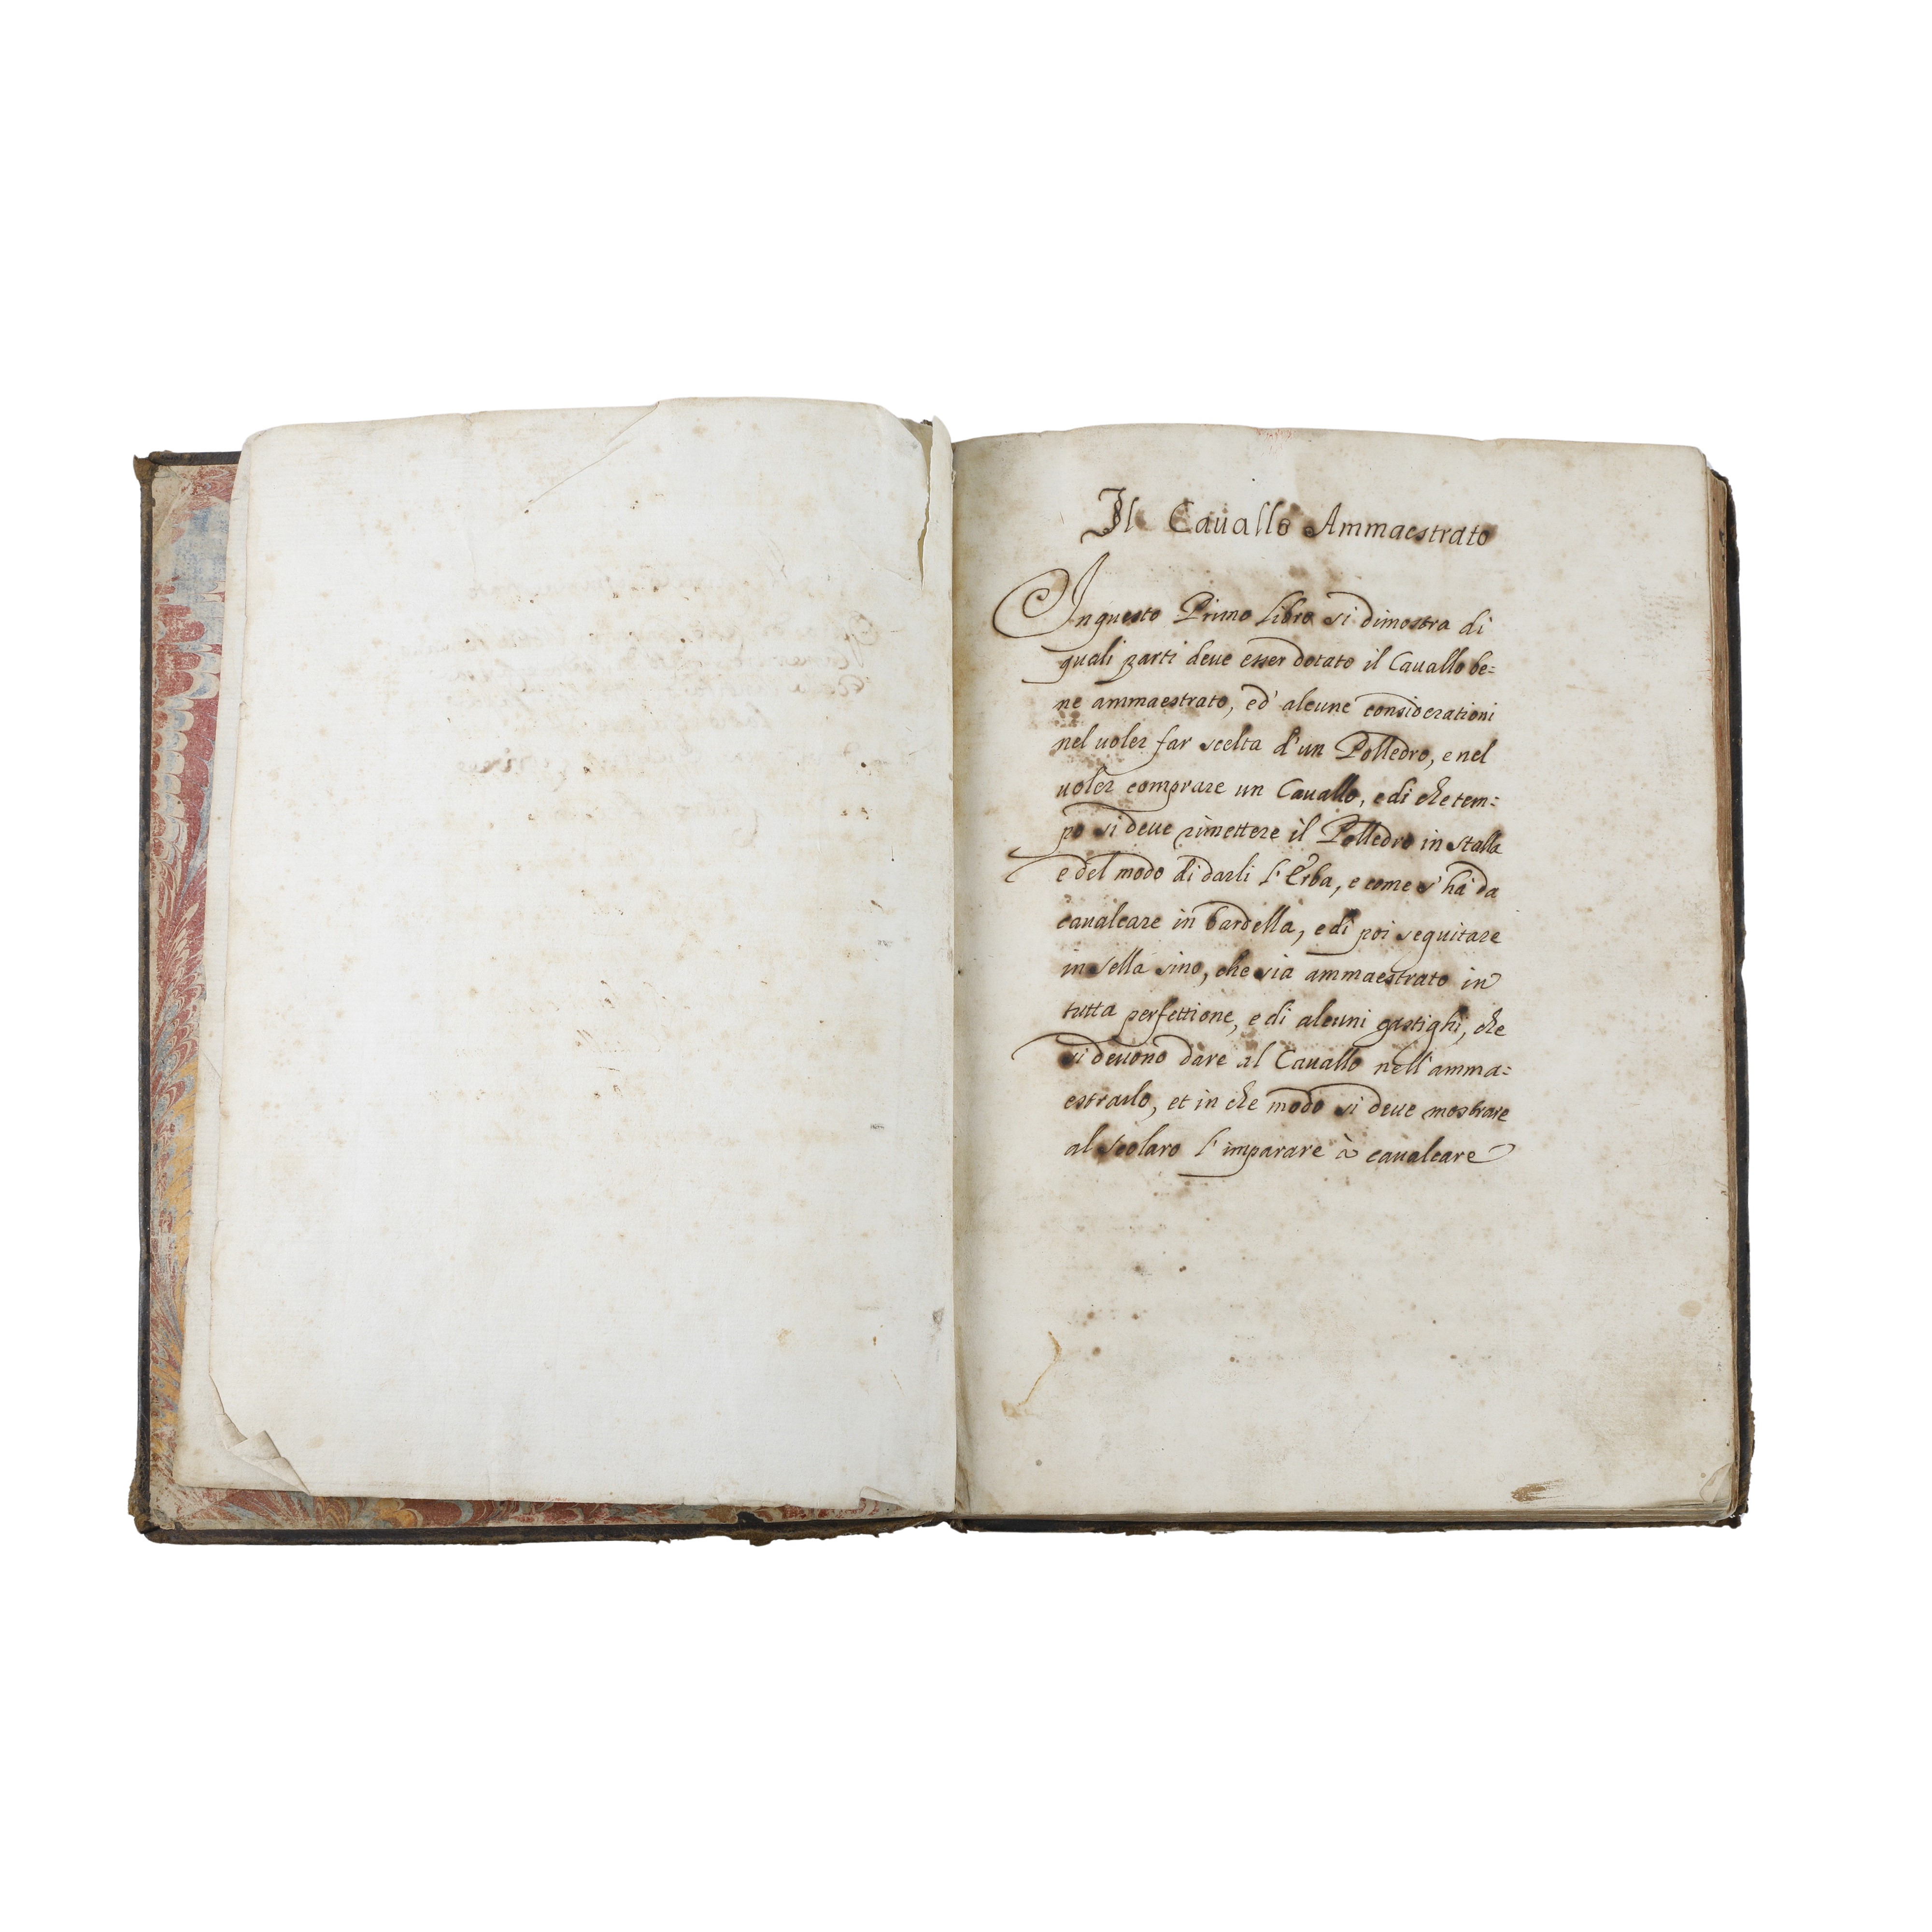 Il Cauallo Ammaestrato
In questo Primo libro si dimostra di
quali parti deue esser dotato il Cauallo be=
ne ammaestrato, ed' alcune considerationi
nel uoler far scelta d'un Polledro, e nel
uoler comprare un Cauallo, e di che tem=
po si deue rimettere il Polledro in stalla
e del modo di darli l'Erba, e come s'hà da
caualcare in bardella, e di poi seguitare
in sella sino, che sia ammaestrato in
tutta perfettione, e di alcuni gastighi, che
si deuono dare al Cauallo nell'amma=
estrarlo, et in che modo si deue mostrare
al scolaro l'imparare à caualcare